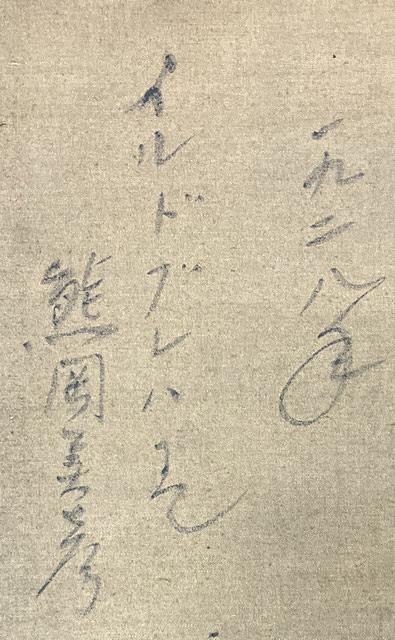 一九二八年
イルドブレハ島
熊岡美彦